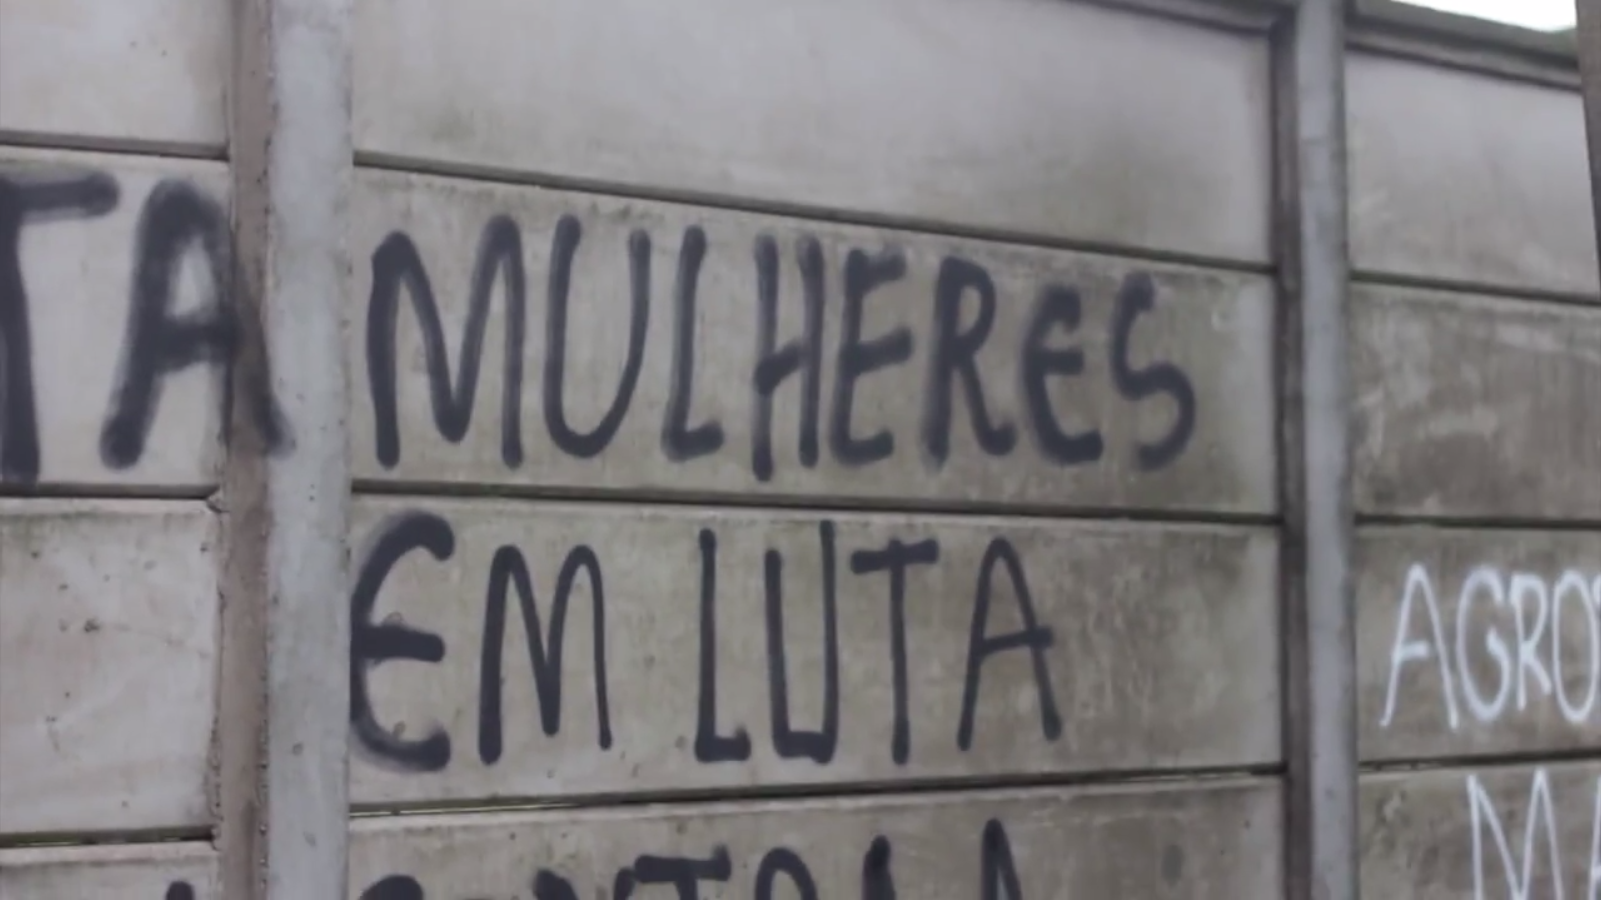 TA MULHERES
EM LUTA
AGRO